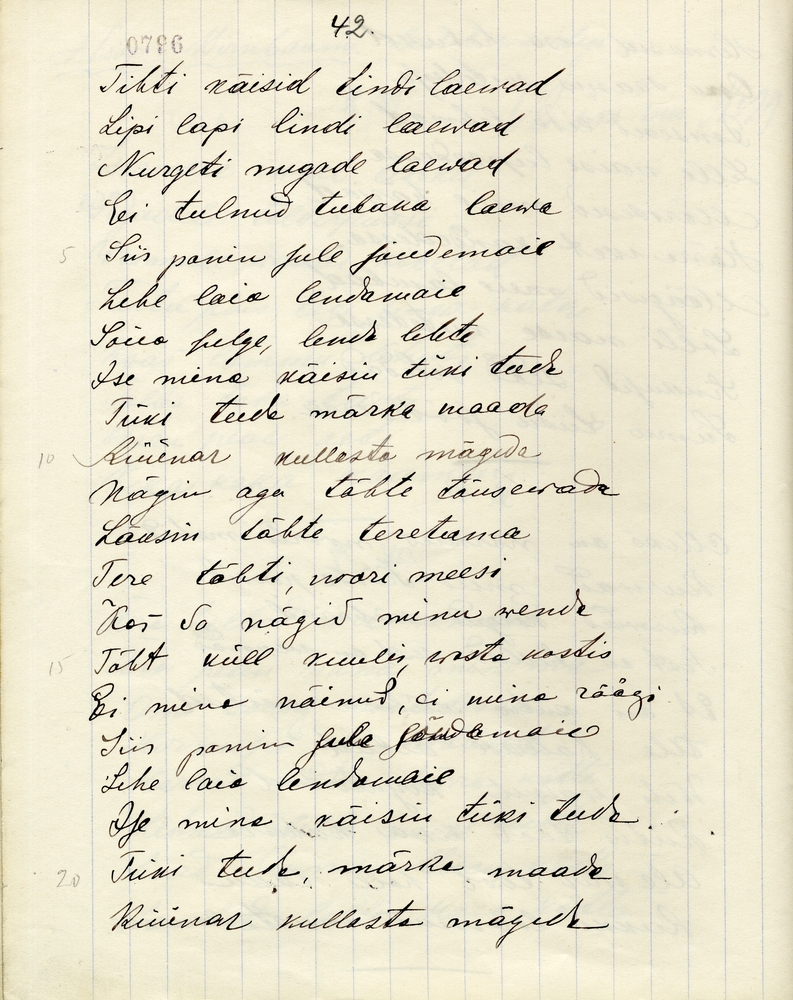 42.
0796
Tihti käisid lindi laewad
Lipi lapi lindi laewad
Nurgeti nugade laewad
Ei tulnud tubaka laewa
5 Siis panin sule sõudemaie
Lehe laia lendamaie
Sõua sulge, lenda lehte
Ise mina käisin tüki teeda
Tüki teeda märka maada
10 Küünar kullasta mägeda
Nägin aga tähte tõusewada
Läksin tähte teretama
Tere tähti, noori meesi
Kas sa nägid minu wenda
15 Täht küll kuulis, wasta kostis
Ei mina näinud, ei mina räägi
Siis panin sule sõudemaie
Lehe laia lendamaie
Ise mina käisin tüki teeda
20 Tüki teeda, märka maada
Küünar kullasta mägeda